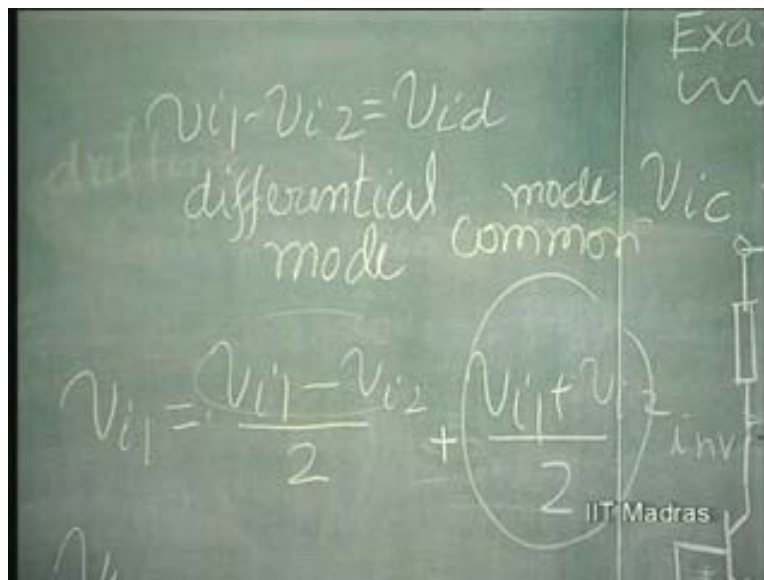 Exa
vi1 - vi2 = vid
differential mode vic
mode common
vi1 = (vi1 - vi2)/2 + (vi1 + vi2)/2
inv
IIT Madras